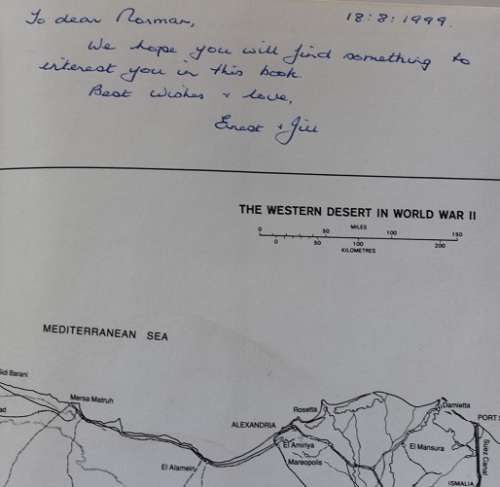 To dear Norman, 18:8:1999.
We hope you will find something to
interest you in this book.
Best Wishes + love,
Ernest + Jill
THE WESTERN DESERT IN WORLD WAR II
0 50 MILES 100 150
0 50 100 KILOMETRES 200
MEDITERRANEAN SEA
Sidi Barani
Mersa Matruh
ad
ALEXANDRIA
Rosetta
Damietta
PORT S
El Amiriya
Mareopolis
El Mansura
Suez Canal
El Alamein
ISMALIA